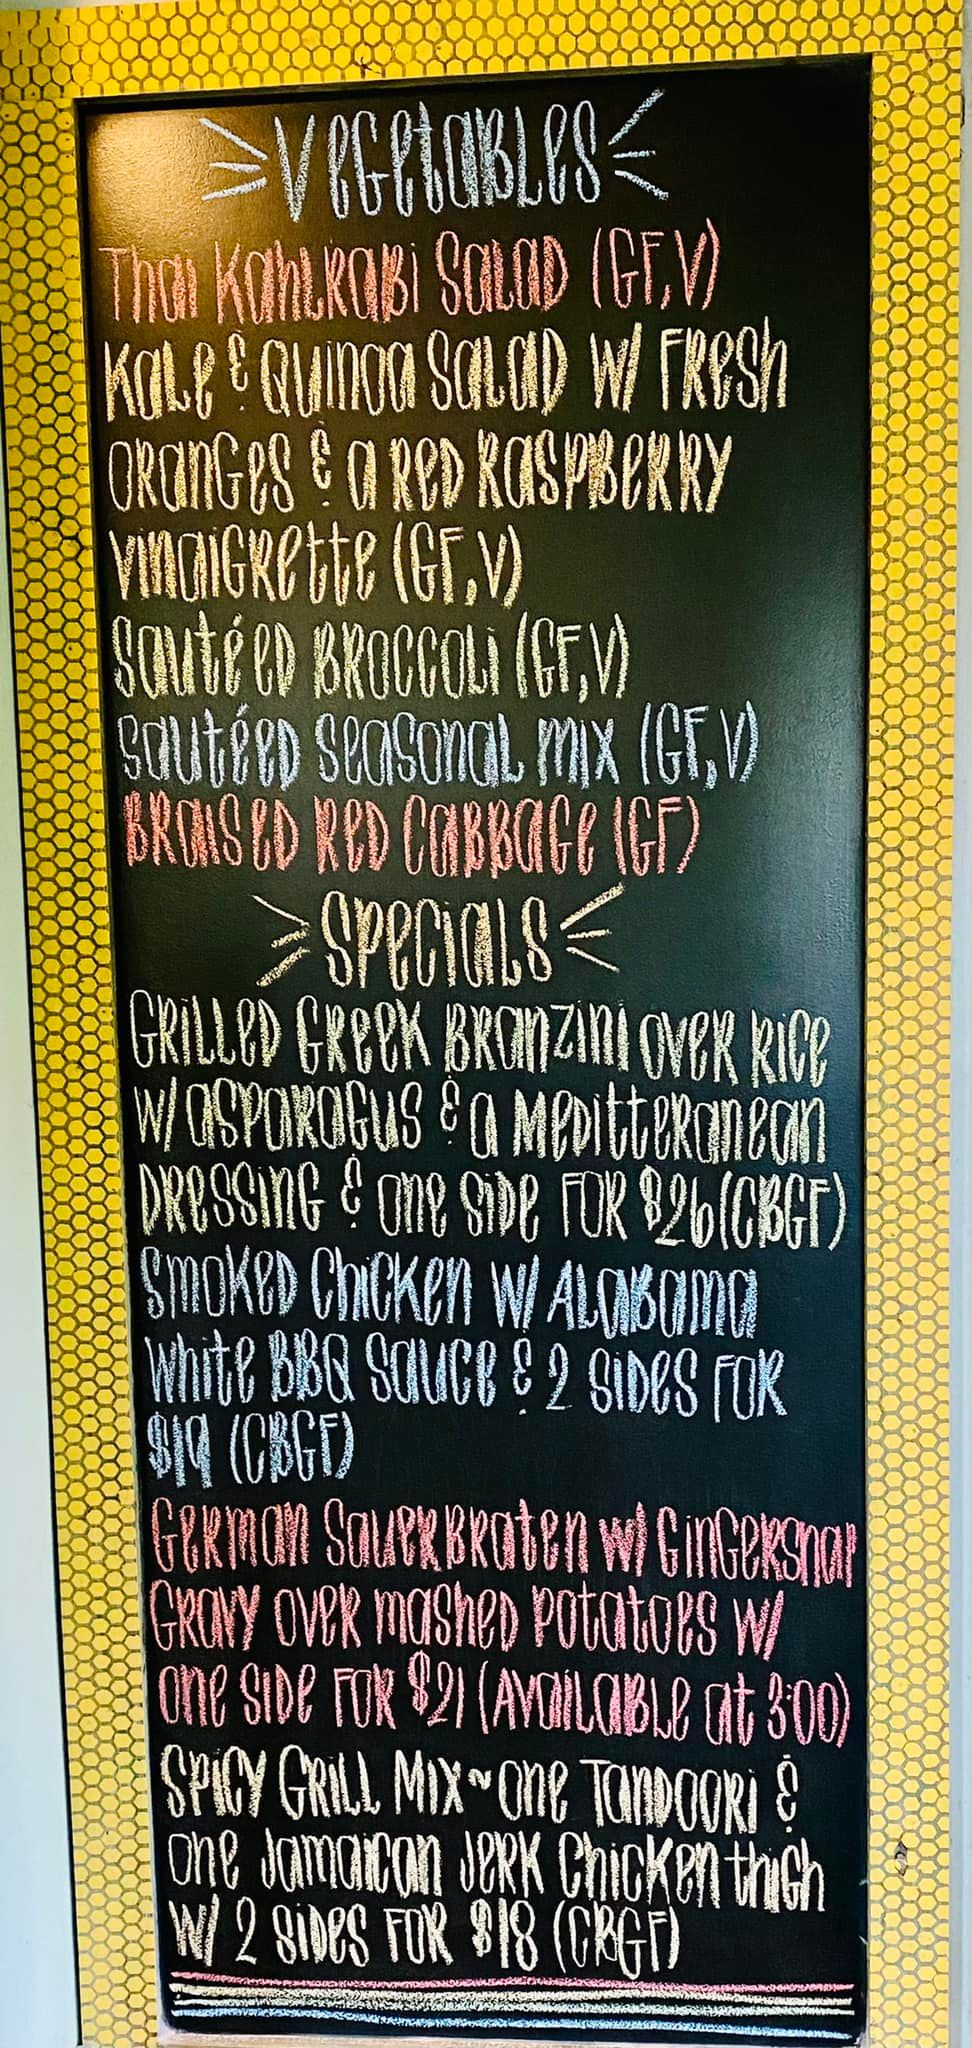 Vegetables
Thai Kahlrabi Salad (GF,V)
Kale & Quinoa Salad w/ Fresh
Oranges & a Red Raspberry
Vinaigrette (GF,V)
Sautéed Broccoli (GF,V)
Sautéed Seasonal Mix (GF,V)
Braised Red Cabbage (GF)
Specials
Grilled Greek Branzini over Rice
w/ Asparagus & a Meditteranean
Dressing & one side for $26 (CBGF)
Smoked Chicken w/ Alabama
White BBQ Sauce & 2 sides for
$19 (CBGF)
German Sauerbraten w/ Gingersnap
Gravy over mashed potatoes w/
one side for $21 (Available at 3:00)
Spicy Grill Mix ~ one Tandoori &
one Jamaican Jerk Chicken thigh
w/ 2 sides for $18 (CBGF)